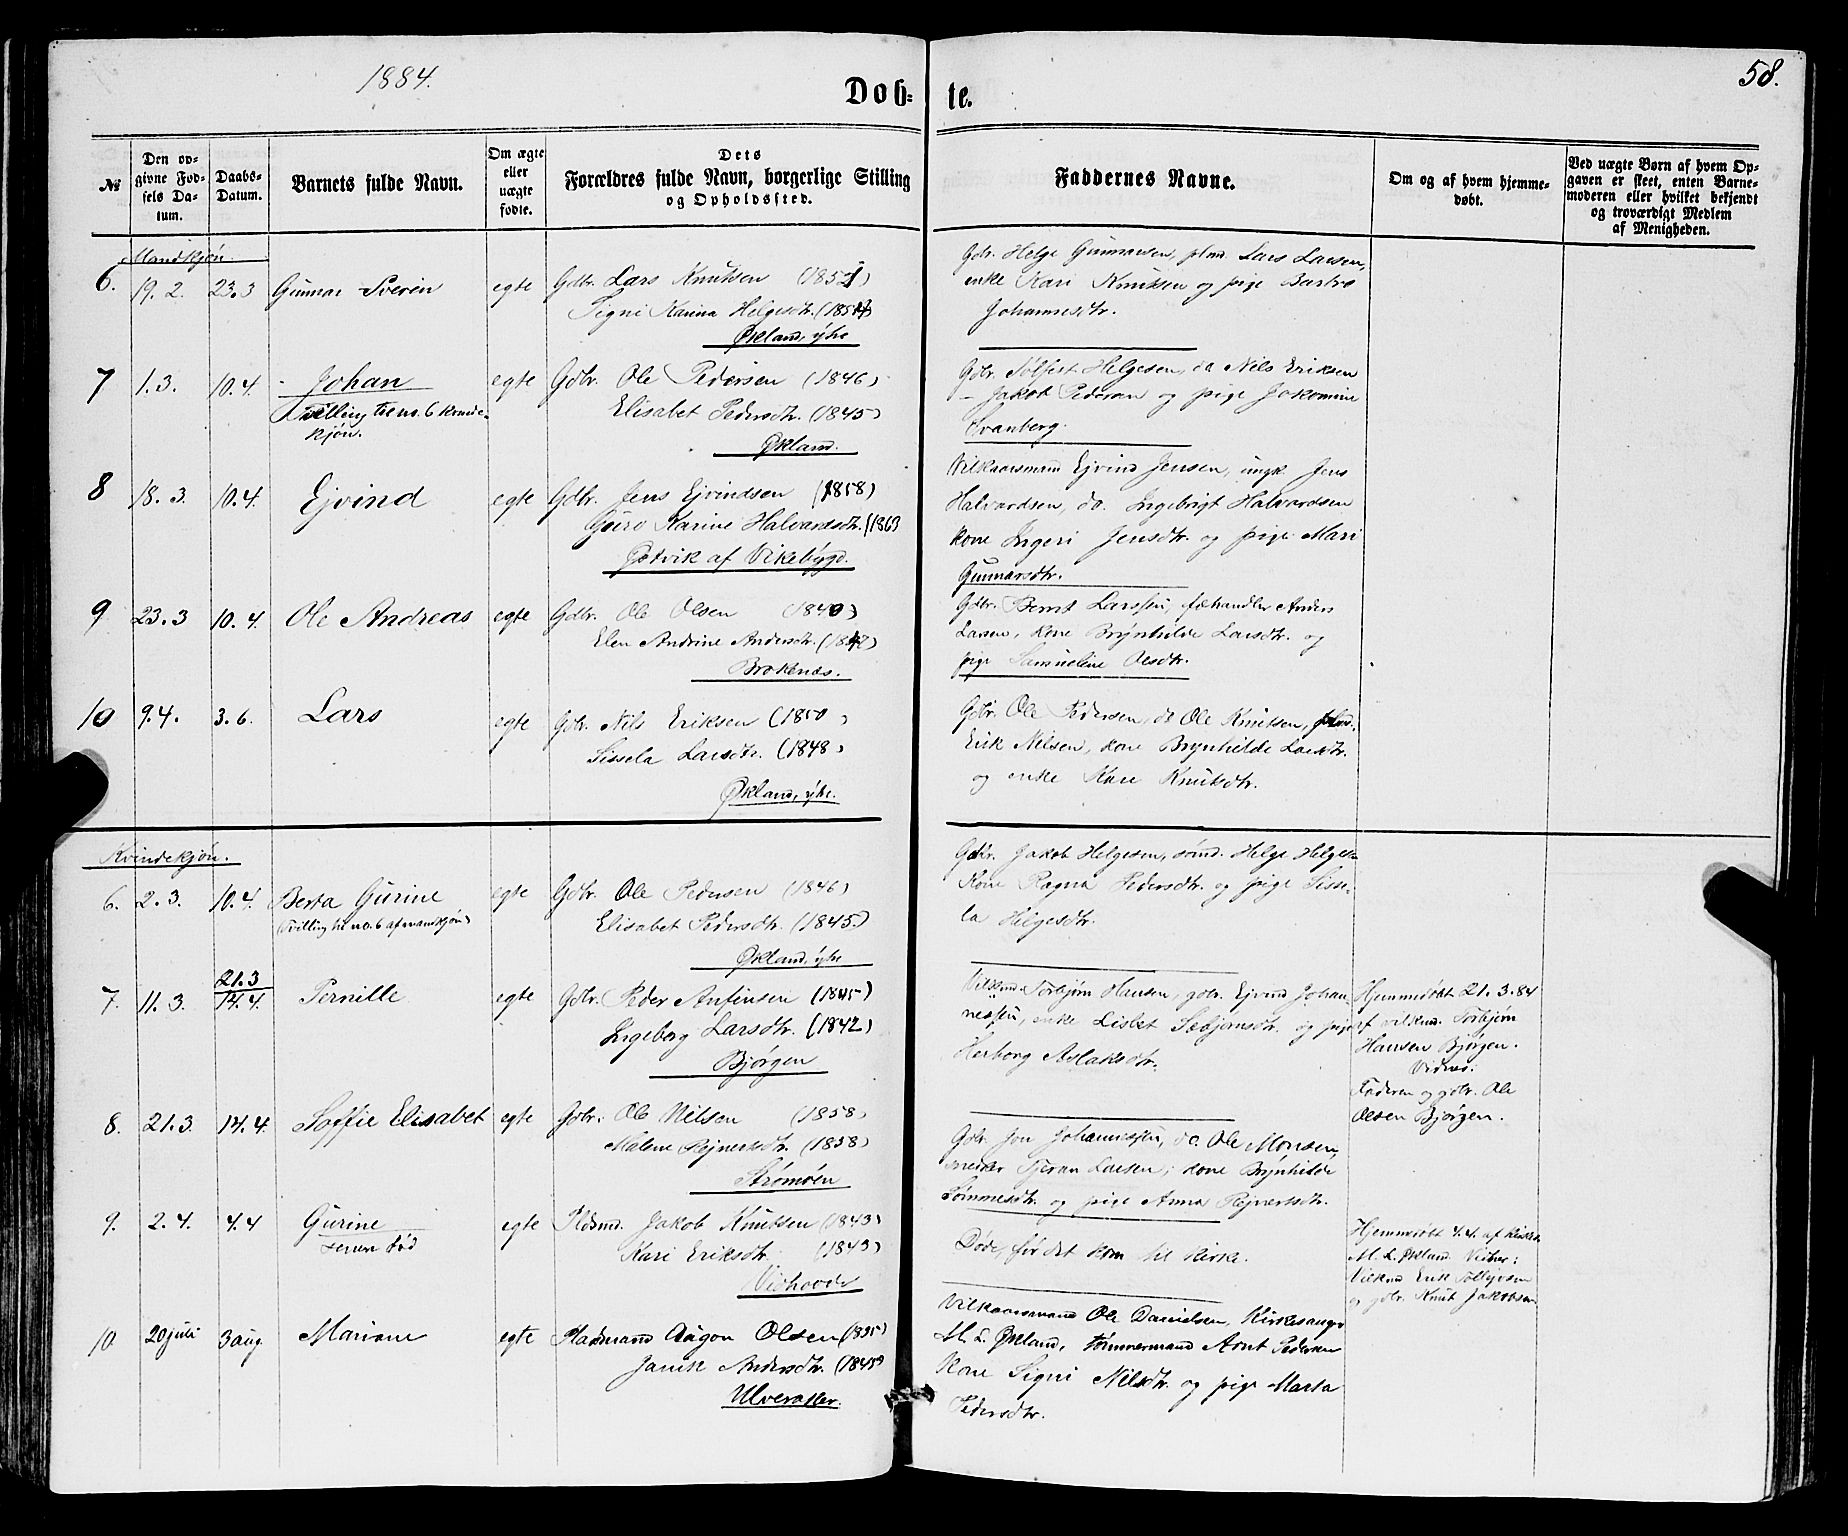 1884.
Døb-
te.
58.
№
Den op-
givne Fød-
sels Da-
tum.
Daabs-
Datum.
Barnets fulde Navn.
Om ægte
eller
uægte
fødte.
Dets
Forældres fulde Navn, borgerlige Stilling
og Opholdssted.
Faddernes Navne.
Om og af hvem hjemme-
døbt.
Ved uægte Børn af hvem Op-
gaven er skeet, enten Barne-
moderen eller hvilket bekjendt
og troværdigt Medlem
af Menigheden.
Mandkjøn
6. 19. 2. 23.3 Gunnar Severin egte Gdbr. Lars Knutsen (1851)
Signi Karina Helgesdtr. (1854)
Økland, ytre
Gdbr. Helge Gunnarsen, plmd. Lars Larsen,
enke Kari Knutsen og pige Bartro
Johannesdtr.
7 1.3. 10.4. Johan egte Gdbr. Ole Pedersen (1846)
Tvilling til no. 6 kvinde-
kjøn.
Elisabet Pedersdtr. (1845)
Økland.
Gdbr. Tolfest Helgesen, do Nils Eriksen
- Jakob Pedersen og pige Jakomine
Svanberg.
8 18. 3. 10.4. Ejvind egte Gdbr. Jens Ejvindsen (1858)
Guro Karine Halvardsdtr. (1863
Østvik af Vikebygd.
Vilkaarsmand Ejvind Jensen, ungk. Jens
Halvardsen, do. Ingebrigt Halvardsen
kone Ingeri Jensdtr. og pige Mari
Gunnarsdtr.
9 23.3 10.4. Ole Andreas egte Gdbr. Ole Olsen (1840)
Elen Andrine Andersdtr. (1842)
Brokenes.
Gdbr. Bernt Larssen, fæhandler Anders
Larsen, kone Brynhilde Larsdtr. og
pige Samueline Olesdtr.
10 9.4. 3.6. Lars egte Gdbr. Nils Eriksen (1850)
Sissela Larsdtr. (1848)
Økland, ytre.
Gdbr. Ole Pedersen, do Ole Knutsen, plmd.
Erik Nilsen, kone Brynhilde Larsdtr.
og enke Kari Knutsdtr.
Kvindekjøn.
6. 2.3. 10.4. Berta Gurine egte Gdbr. Ole Pedersen (1846)
(Tvilling til no. 6 af mandkjøn)
Elisabet Pedersdtr. (1845)
Økland, ytre
Gdbr. Jakob Helgesen, sømd. Helge Helgesen
Kone Ragna Pedersdtr. og pige Sisse-
la Helgesdtr.
7. 11.3. 21.3
14.4. Pernille egte Gdbr. Peder Anfinsen (1845)
Ingeborg Larsdtr. (1842)
Bjørgen
Vilkmd. Torbjørn Hansen, gdbr. Ejvind Johan-
nessen, enke Lisbet Sæbjørnsdtr. og pige
Herborg Aslaksdtr.
Hjemmedøbt 21.3.84
af vilkmd. Torbjørn
Hansen Bjørgen.
Vidner:
Faderen og gdbr. Ole
Olsen Bjørgen.
8. 21.3. 14.4. Soffie Elisabet egte Gdbr. Ole Nilsen (1858)
Malene Rejnertsdtr. (1858)
Strømøen
Gdbr. Jon Johannessen, do. Ole Monsen,
snedker Tjeran Larsen, kone Brynhilde
Tømmesdtr. og pige Anna Rejnertsdtr.
9. 2.4. 4.4 Gurine egte Pldsmd. Jakob Knutsen (1843)
Kari Eriksdtr. (1843)
Døde, før det kom til kirke.
Hjemmedøbt 4.4. af kirkes.
M. L. Økland. Vidner:
Vilkmd Erik Tollejvsen
og gdbr. Knut Jakobsen.
10. 20 juli 3 aug. Mariane egte Pladsmand Aagon Olsen (1835)
Janik Andersdtr. (1845)
Ulveraker.
Vilkaarsmand Ole Danielsen, Kirkesanger
M. L. Økland, tømmermand Arnt Pedersen
Kone Signi Nilsdtr. og pige Marta
Pedersdtr.